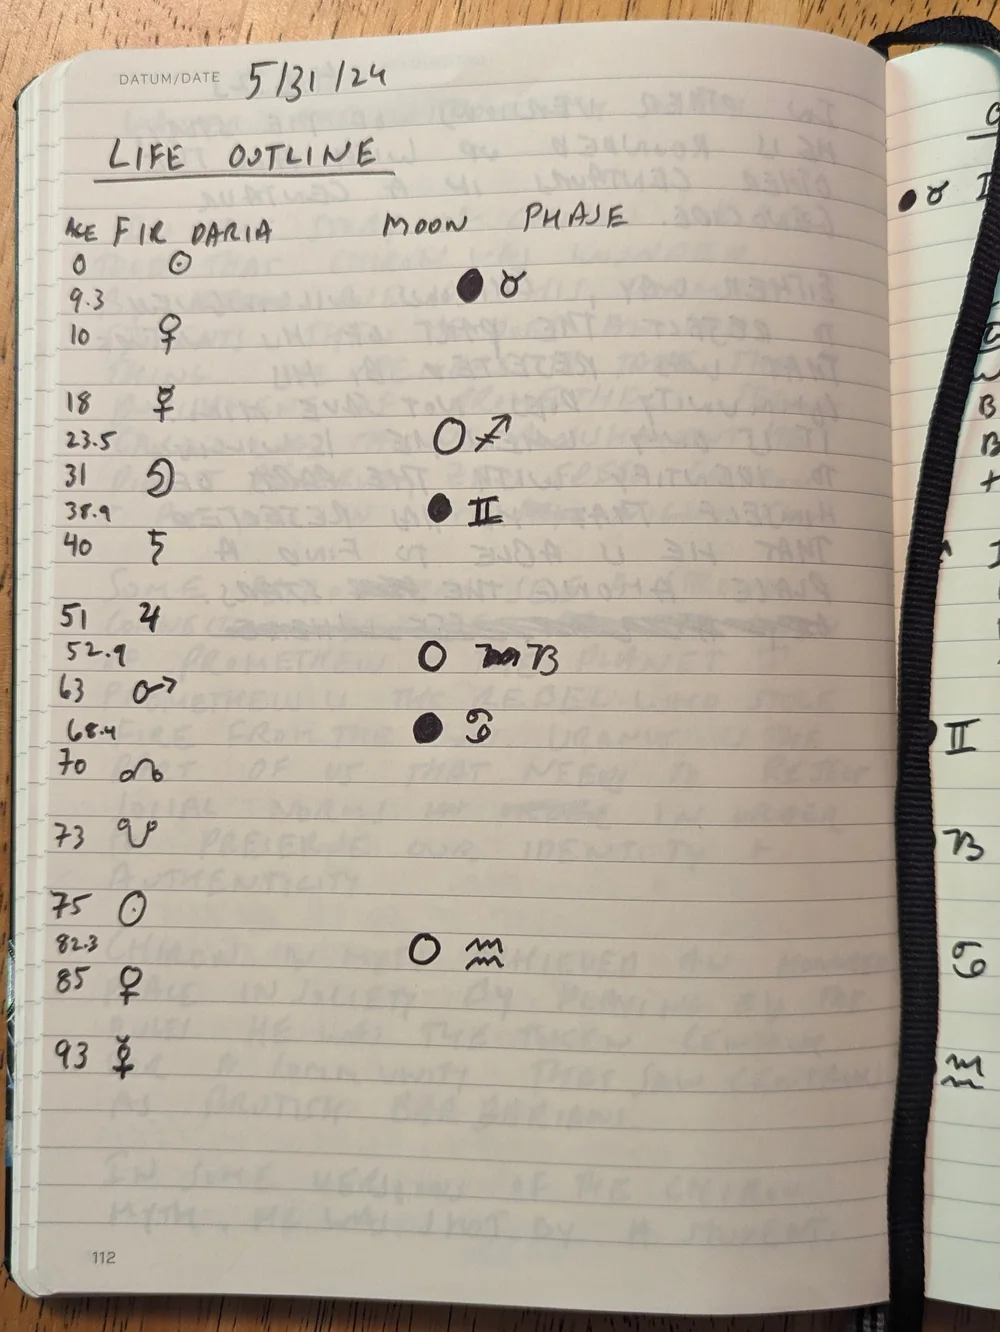 DATUM/DATE 5/31/24
LIFE OUTLINE
AGE FIRDARIA MOON PHASE
0 ☉
9.3 ● ♉
10 ♀
18 ☿
23.5 ○ ♐
31 ☽
38.9 ● ♊
40 ♄
51 ♃
52.9 ○ ♑
63 ♂
68.4 ● ♋
70 ☊
73 ☋
75 ☉
82.3 ○ ♒
85 ♀
93 ☿
112
● ♉
B
B
♊
♑
♋
♒